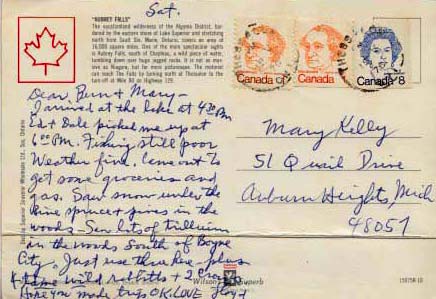 Sat.
"AUBREY FALLS"
The vacationland wilderness of the Algoma District, bordered by the eastern shore of Lake Superior and stretching north from Sault Ste. Marie, Ontario, covers an area of 16,000 square miles. One of the more spectacular sights is Aubrey Falls, south of Chapleau, a wild piece of water, tumbling down over huge jagged rocks. It is not as massive as Niagara, but far more picturesque. The motorist can reach The Falls by turning north at Thessalon to the turn-off at Mile 60 on Highway 129.
Canada
Canada
Canada 8
Dear Bun & Mary-
I arrived at the lake at 4:30 PM.
Ed & Dale picked me up at
6:00 PM. Fishing still poor
Weather fine. Came out to
get some groceries and
gas. Saw snow under the
pine spruce & pines in the
woods. Saw lots of trillium
in the woods South of Boyne
City. Just use three hens plus
wild rabbits + 2
Hope you made trip OK. LOVE Floyd
Mary Kelly
51 Quail Drive
Auburn Heights, Mich
48057